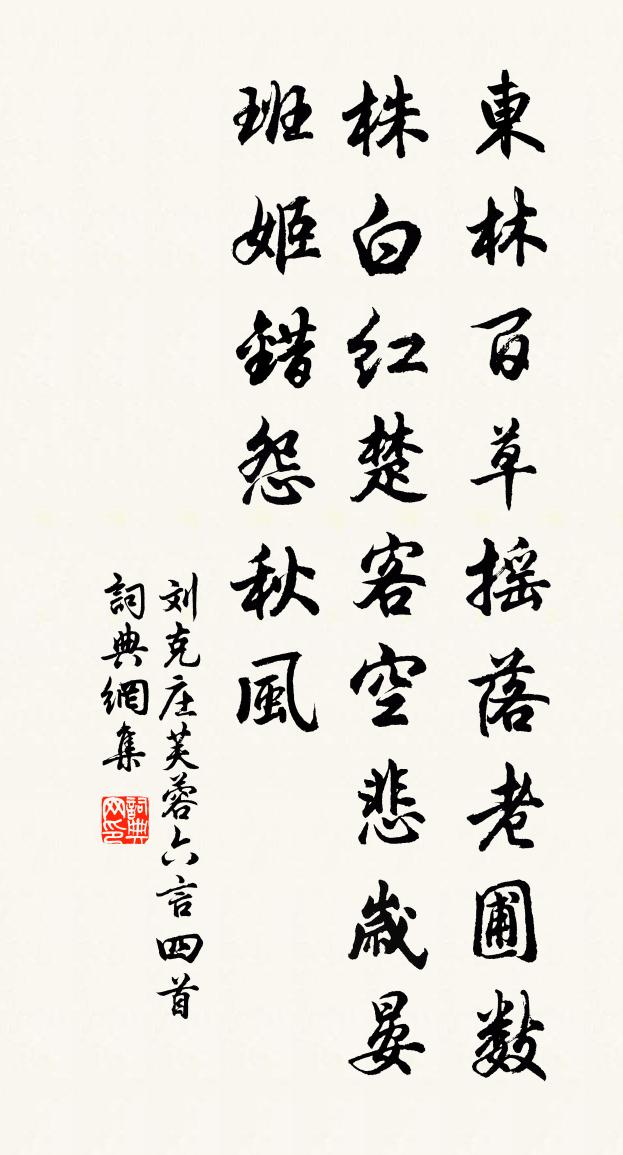 東林百草摇落老圃数
株白红楚客空悲歲晏
班姬錯怨秋風
刘克庄芙蓉六言四首
詞典網集
詞典网印